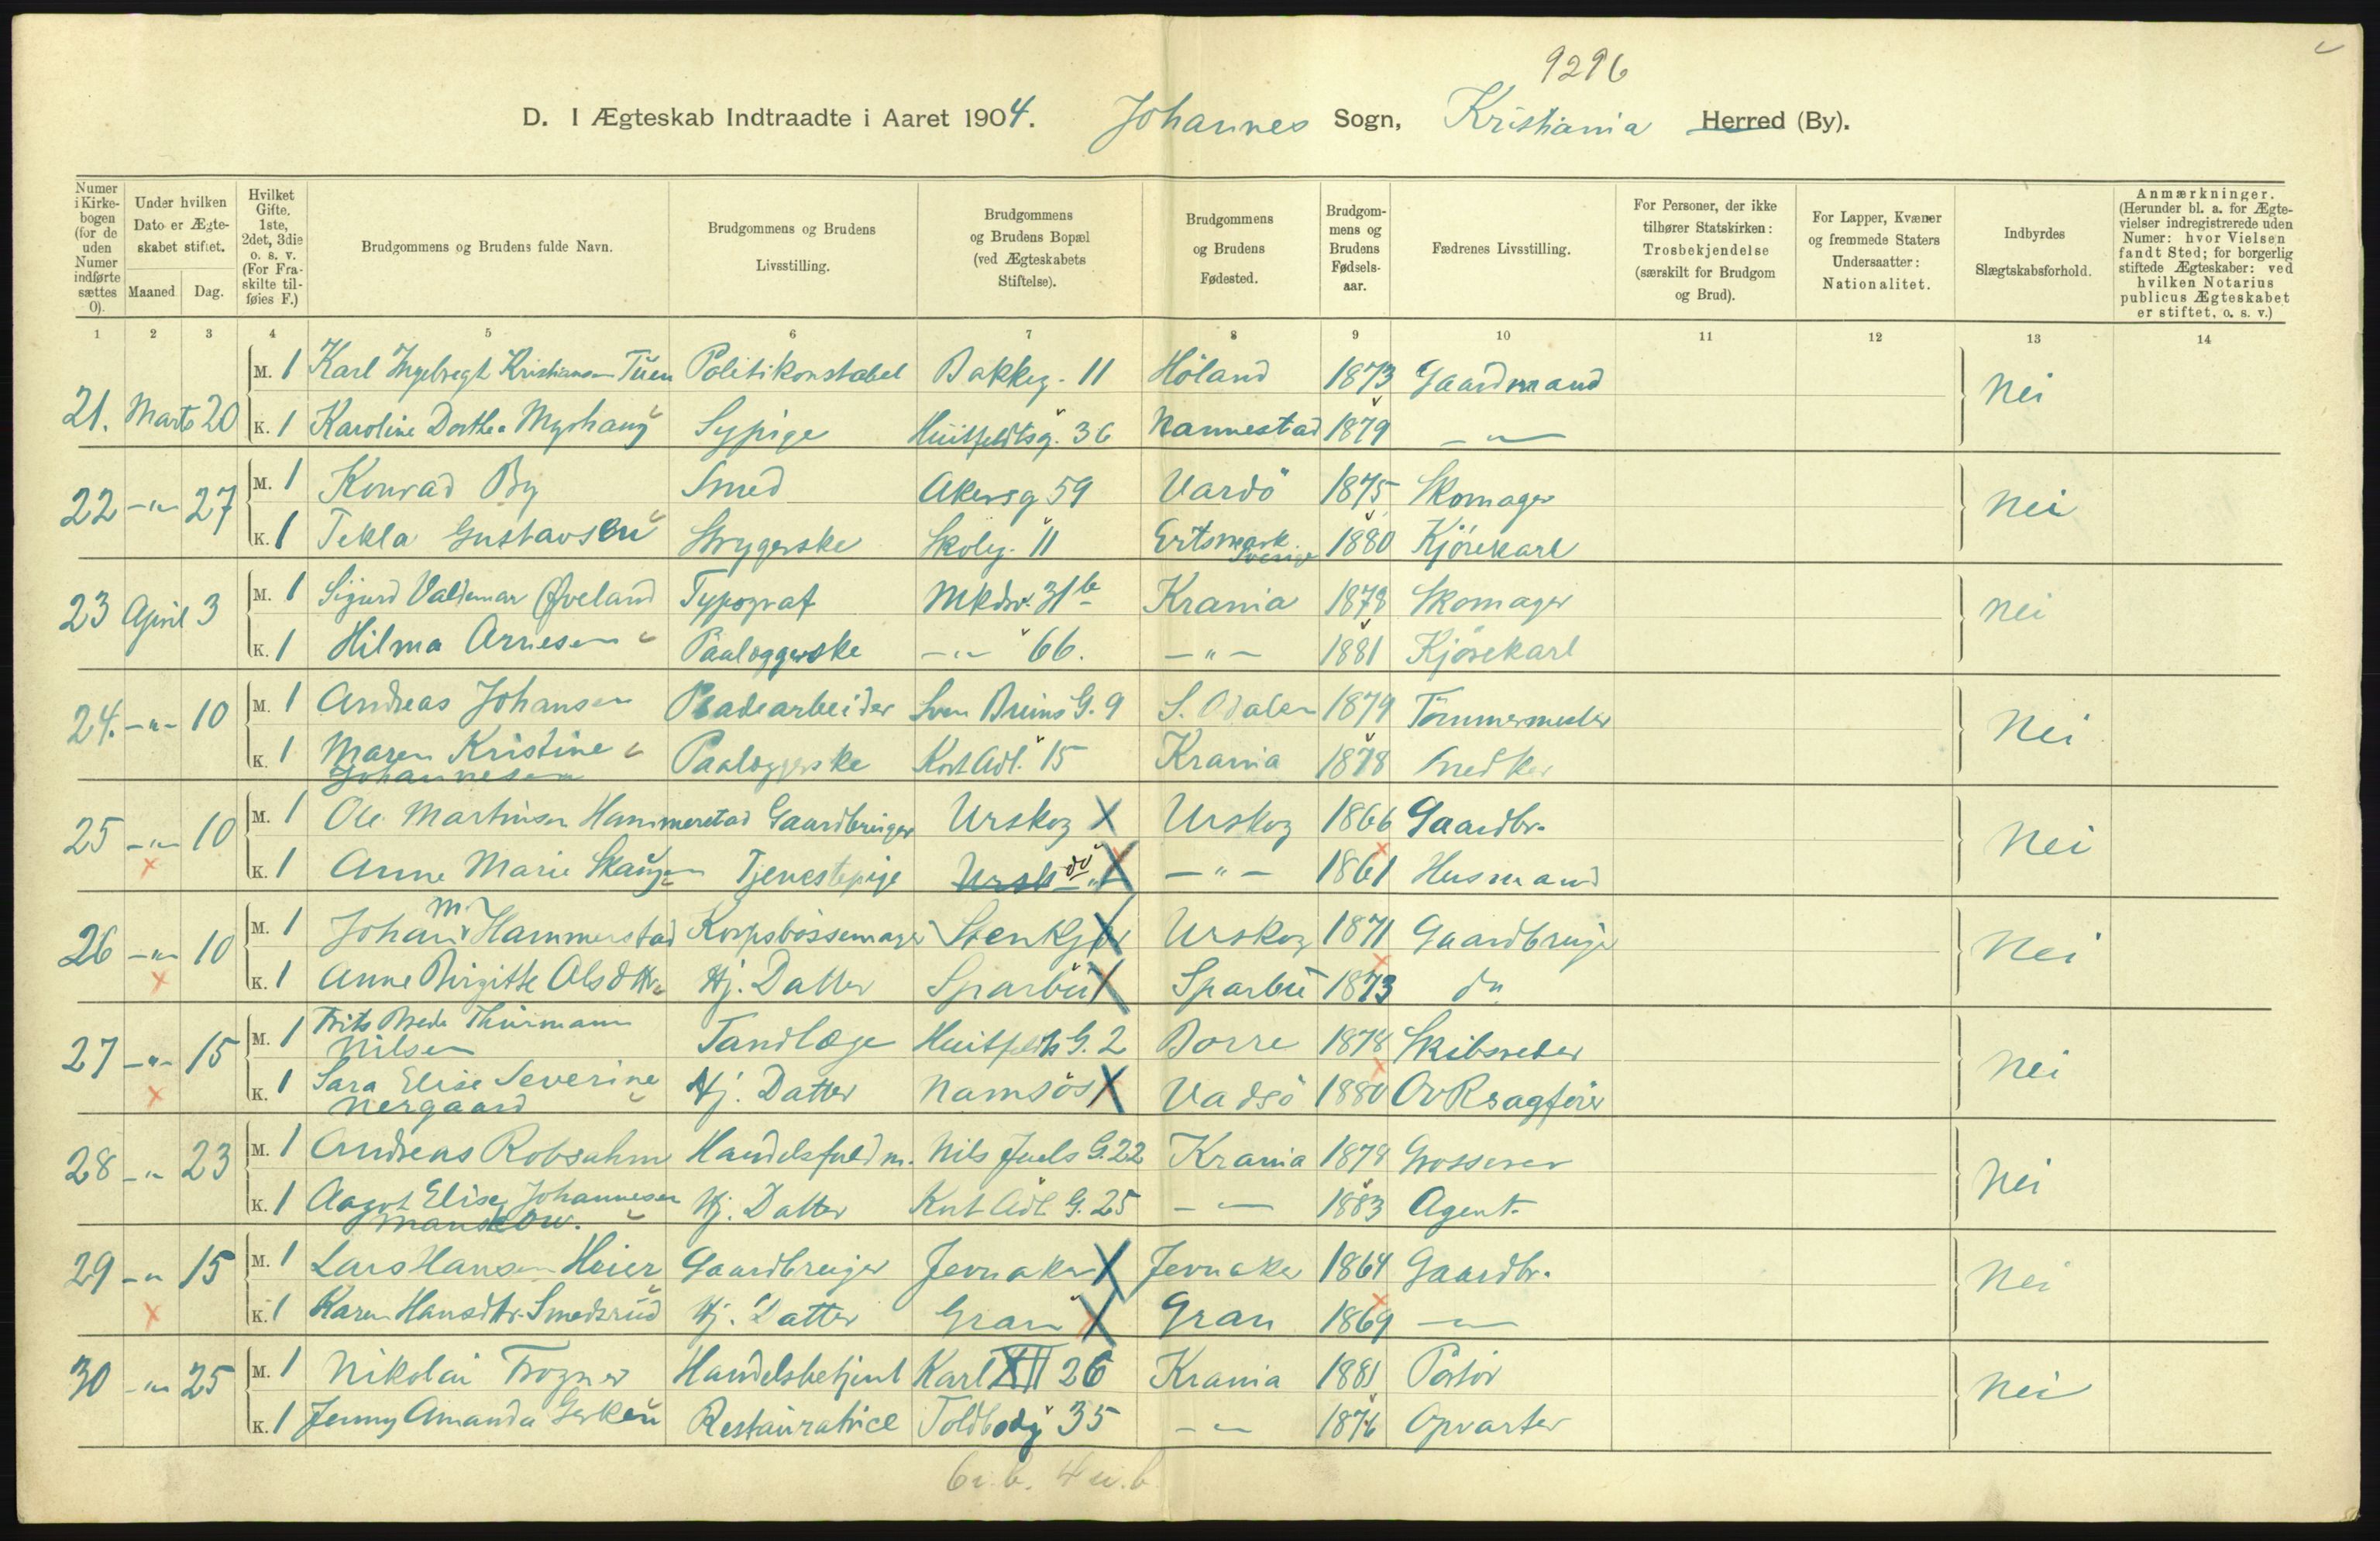 9296
D. I Ægteskab Indtraadte i Aaret 1904. Johannes Sogn, Kristiania Herred (By).
Numer i Kirkebogen (for de uden Numer indførte sættes 0).
Under hvilken Dato er Ægteskabet stiftet.
Maaned Dag.
Hvilket Gifte, 1ste, 2det, 3die o. s. v. (For Fraskilte tilføies F.)
Brudgommens og Brudens fulde Navn.
Brudgommens og Brudens Livsstilling.
Brudgommens og Brudens Bopæl (ved Ægteskabets Stiftelse).
Brudgommens og Brudens Fødested.
Brudgommens og Brudens Fødselsaar.
Fædrenes Livsstilling.
For Personer, der ikke tilhører Statskirken: Trosbekjendelse (særskilt for Brudgom og Brud).
For Lapper, Kvæner og fremmede Staters Undersaatter: Nationalitet.
Indbyrdes Slægtskabsforhold.
Anmærkninger. (Herunder bl. a. for Ægtevielser indregistrerede uden Numer: hvor Vielsen fandt Sted; for borgerlig stiftede Ægteskaber: ved hvilken Notarius publicus Ægteskabet er stiftet, o. s. v.)
1 2 3 4 5 6 7 8 9 10 11 12 13 14
M. 1 Karl Ingebregt Kristiansen Tuen Politikonstabel Bakkeg. 11 Höland 1873 Gaardmand
21. Marts 20 Nei
K. 1 Karoline Dorthea Myrhaug Sypige Huitfeldtsg. 36 Nannestad 1879 — " —
M. 1 Konrad By Smed Akersg 59 Vardö 1875 Skomager
22 — " — 27 Nei
K. 1 Tekla Gustavsen Strygerske Skoleg. 11 Ertsmark Sverige 1880 Kjörekarl
M. 1 Sigurd Valdemar Øveland Typograf Mkdv. 31 b Krania 1878 Skomager
23 April 3 Nei
K. 1 Hilma Arnesen Paaloggerske — " — 66. — " — 1881 Kjörekarl
M. 1 Andreas Johansen Pladearbeider Sven Bruns G. 9 S. Odalen 1879 Tömmermester
24. — " — 10 Nei
K. 1 Maren Kristine Johannesen Paaloggerske Kort Adl. 15 Krania 1878 Snedker
M. 1 Ole Martinsen Hammerstad Gaardbruger Urskog X Urskog 1866 Gaardbr.
25 — " — 10 Nei
K. 1 Anne Marie Skaugen Tjenestepige Ursk do X — " — 1861 Husmand
M. 1 Johan M. Hammerstad Korpsbössemager Stenkjær X Urskog 1871 Gaardbruger
26 — " — 10 Nei
K. 1 Anne Birgitte Olsdtr. Hj. Datter Sparbu X Sparbu 1873 do
M. 1 Frits Brede Thurmann Nilsen Tandlæge Huitfeldts G. 2 Borre 1878 Skibsreder
27 — " — 15 Nei
K. 1 Sara Elise Severine Nergaard Hj. Datter Namsös X Vadsö 1880 OvRsagförer
M. 1 Andreas Robsahm Handelsfuldm. Nils Juels G. 22 Krania 1878 Grosserer
28 — " 23 Nei
K. 1 Aagot Elise Johannesen Manskow. Hj. Datter Kort Adl. G. 25 — " — 1883 Agent.
M. 1 Lars Hansen Heier Gaardbruger Jevnaker X Jevnaker 1864 Gaardbr.
29 — " 15 Nei
K. 1 Karen Hansdtr. Smedsrud Hj. Datter Gran X Gran 1869 — " —
M. 1 Nikolai Frogner Handelsbetjent Karl XII 26 Krania 1881 Portör
30 — " — 25 Nei
K. 1 Jenny Amanda Gerken Restauratrice Toldbodg 35 — " — 1876 Opvarter
6 u. b. 4 u. b